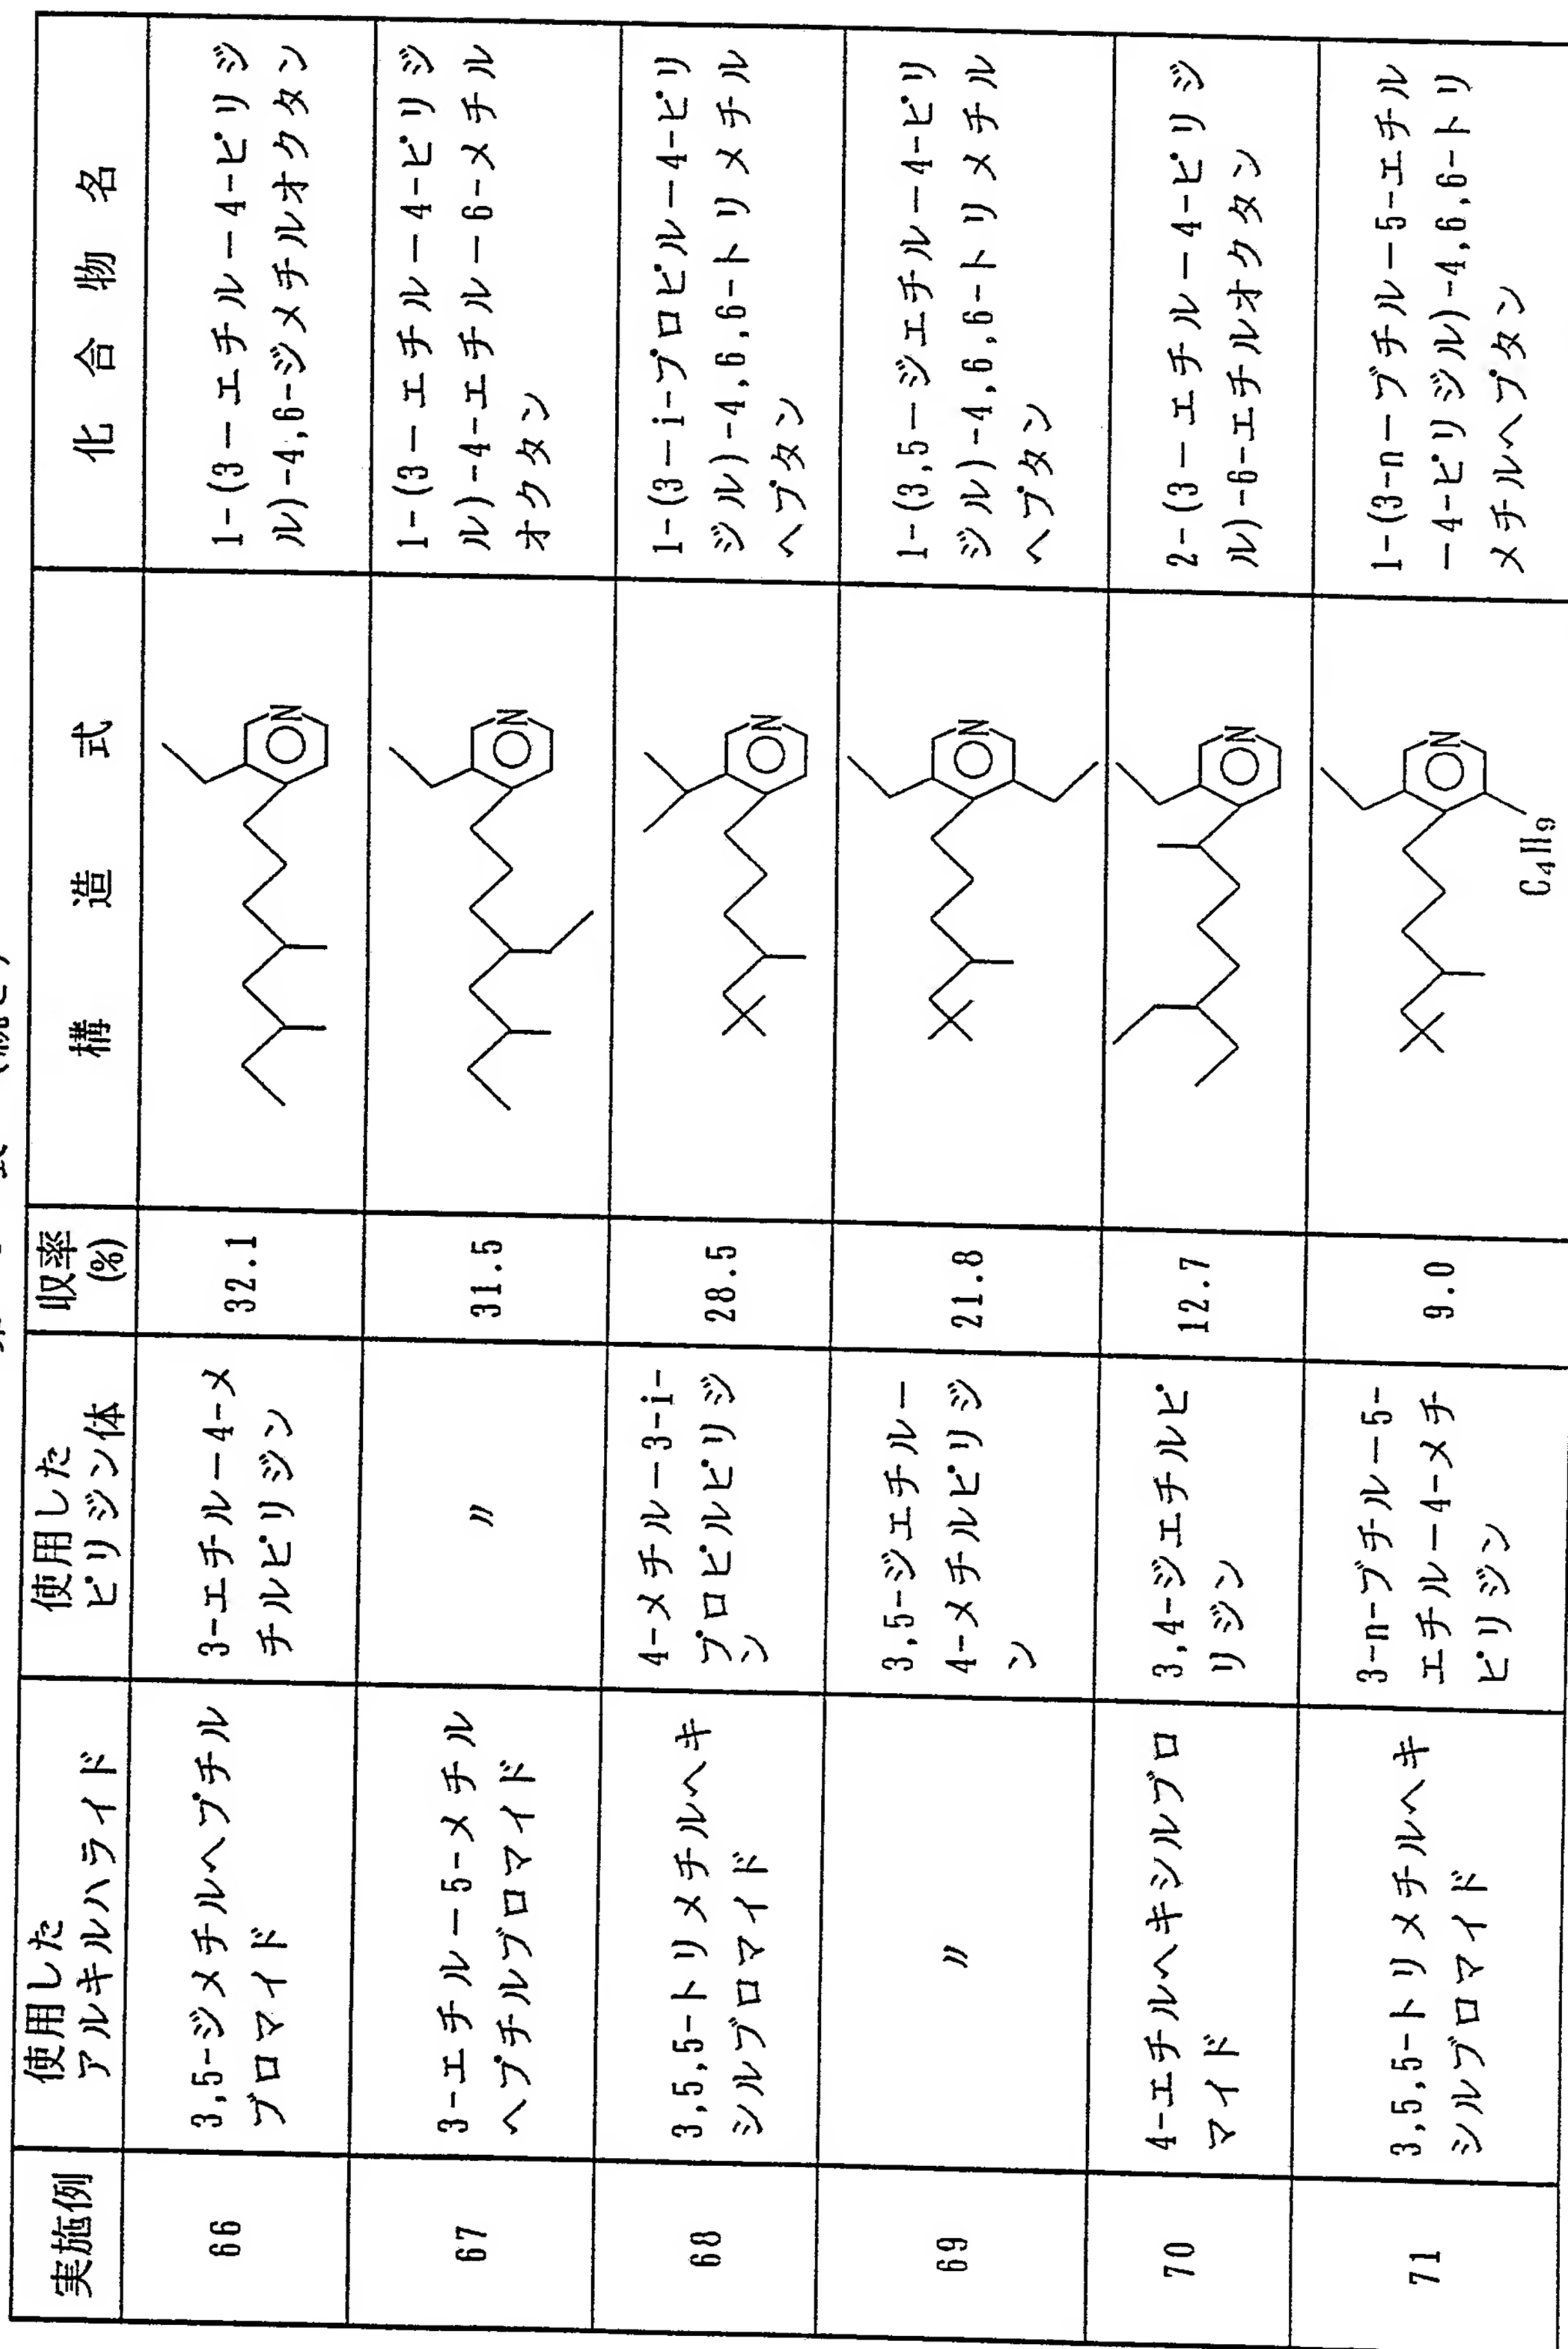 実施例
使用した
アルキルハライド
使用した
ピリジン体
収率
(%)
構造式
化合物名
66
3,5-ジメチルヘプチル
ブロマイド
3-エチル-4-メ
チルピリジン
32.1
N
1-(3-エチル-4-ピリジ
ル)-4,6-ジメチルオクタン
67
3-エチル-5-メチル
ヘプチルブロマイド
〃
31.5
N
1-(3-エチル-4-ピリジ
ル)-4-エチル-6-メチル
オクタン
68
3,5,5-トリメチルヘキ
シルブロマイド
4-メチル-3-i-
プロピルピリジ
ン
28.5
N
1-(3-i-プロピル-4-ピリ
ジル)-4,6,6-トリメチル
ヘプタン
69
〃
3,5-ジエチル-
4-メチルピリジ
ン
21.8
N
1-(3,5-ジエチル-4-ピリ
ジル)-4,6,6-トリメチル
ヘプタン
70
4-エチルヘキシルブロ
マイド
3,4-ジエチルピ
リジン
12.7
N
2-(3-エチル-4-ピリジ
ル)-6-エチルオクタン
71
3,5,5-トリメチルヘキ
シルブロマイド
3-n-ブチル-5-
エチル-4-メチ
ピリジン
9.0
N
C4H9
1-(3-n-ブチル-5-エチル
-4-ピリジル)-4,6,6-トリ
メチルヘプタン